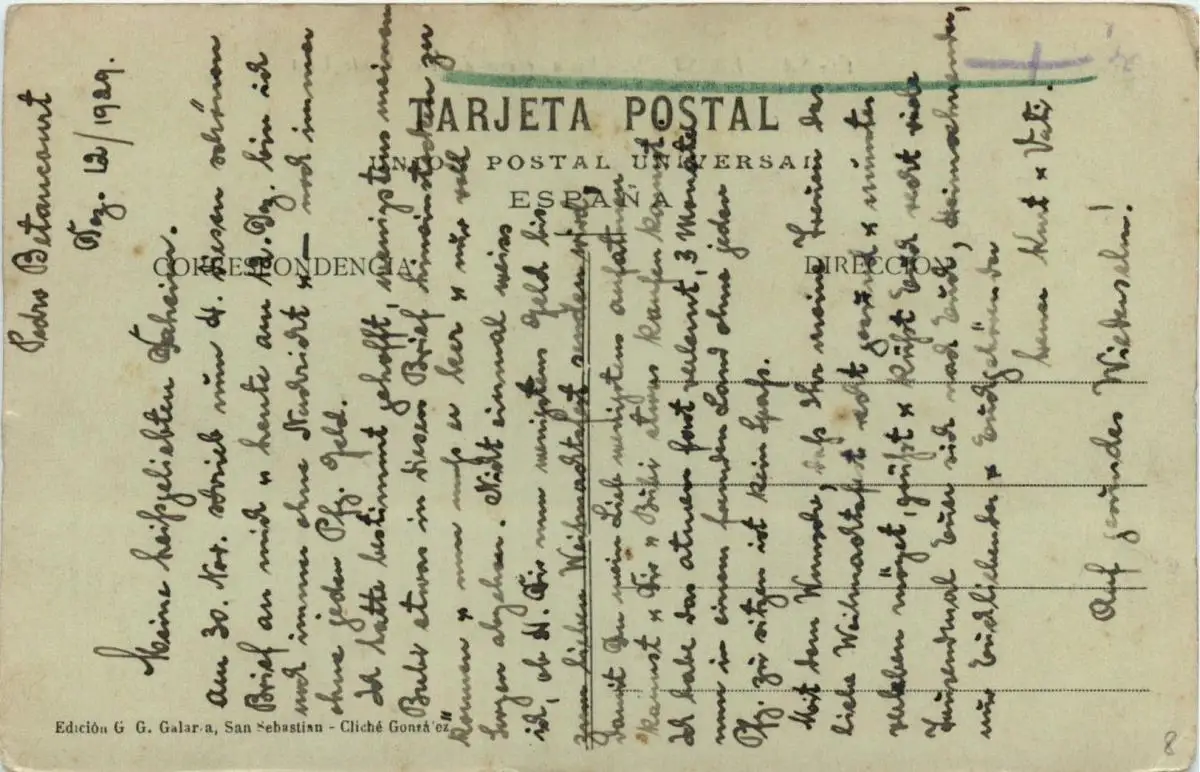 TARJETA POSTAL
UNION POSTAL UNIVERSAL
ESPAÑA
CORRESPONDENCIA
DIRECCION
Pedro Betancourt
Dez. 12/1929.
Meine heißgeliebten Daheim.
Am 30. Nov. schrieb nun N. diesen schönen
Brief an mich u heute am 12. Dez. bin ich
noch immer ohne Nachricht u – noch immer
ohne jeden Pfg. Geld.
Ich hatte bestimmt gehofft, wenigstens meinen
Bruder etwas in diesen Brief hineinstecken zu
können u nun muß er leer u nur voll
Sorgen abgehen. Nicht einmal weiss
ich, ob N. Dir nun wenigstens Geld bis
zum lieben Weihnachtsfest senden wird,
damit Du mein Lieb wenigstens aufatmen
kannst u Dir u Bübi etwas kaufen kannst.
Ich habe das atmen fast verlernt, 3 Monate
nun in einem fremden Land ohne jeden
Pfg. zu sitzen ist kein Spaß.
Mit dem Wunsche, daß Ihr meine Treuen das
liebe Weihnachtsfest recht gesund u munter
verleben möget, grüßt u küßt Euch recht viele
Tausendmal Euer sich nach Euch, heimsehnender,
nur Euch liebender u Euch gehörender
Kurt u Vati.
Auf gesundes Wiedersehn!
Edición G. G. Galarza, San Sebastian - Cliché González
8